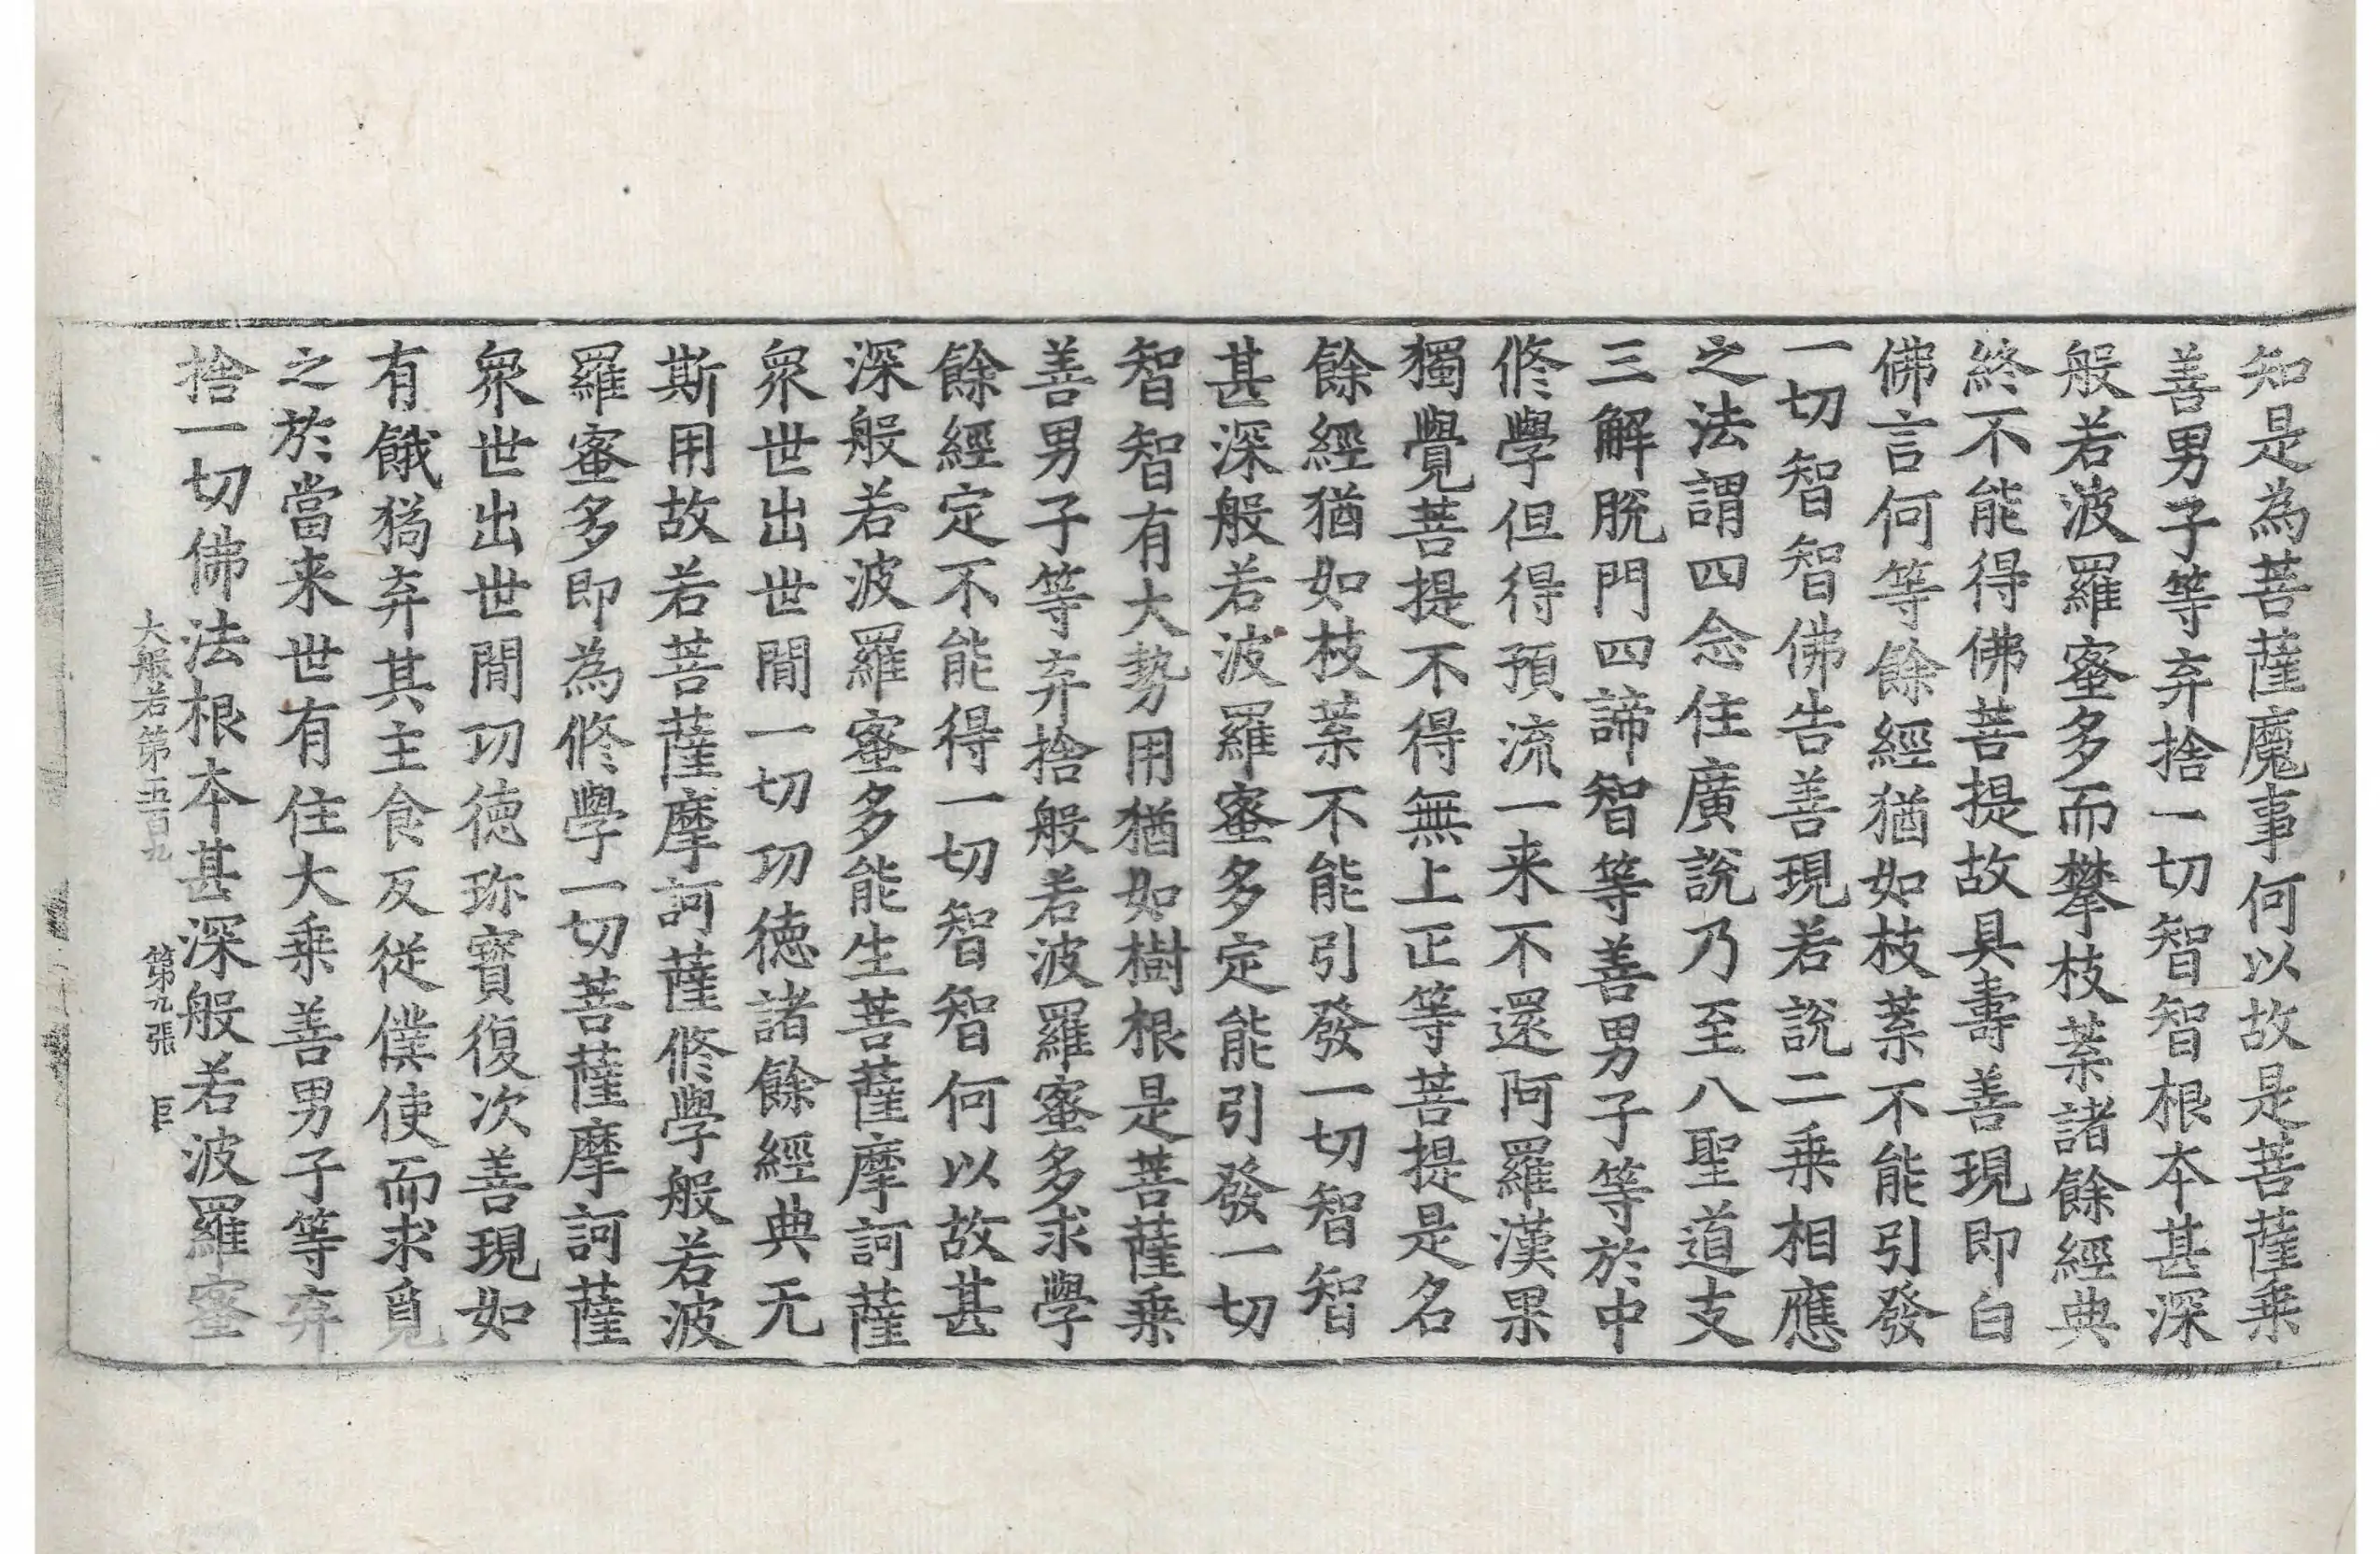 知是為菩薩魔事何以故是菩薩乗
善男子等弃捨一切智智根本甚深
般若波羅蜜多而攀枝葉諸餘經典
終不能得佛菩提故具壽善現即白
佛言何等餘經猶如枝葉不能引發
一切智智佛告善現若說二乗相應
之法謂四念住廣說乃至八聖道支
三解脫門四諦智等善男子等於中
修學但得預流一来不還阿羅漢果
獨覺菩提不得無上正等菩提是名
餘經猶如枝葉不能引發一切智智
甚深般若波羅蜜多定能引發一切
智智有大勢用猶如樹根是菩薩乗
善男子等弃捨般若波羅蜜多求學
餘經定不能得一切智智何以故甚
深般若波羅蜜多能生菩薩摩訶薩
衆世出世閒一切功德諸餘經典无
斯用故若菩薩摩訶薩修學般若波
羅蜜多即為修學一切菩薩摩訶薩
衆世出世閒功德珎寶復次善現如
有餓猲弃其主食反從僕使而求覓
之於當来世有住大乗善男子等弃
捨一切佛法根本甚深般若波羅蜜
大般若第五百九 第九張 巨